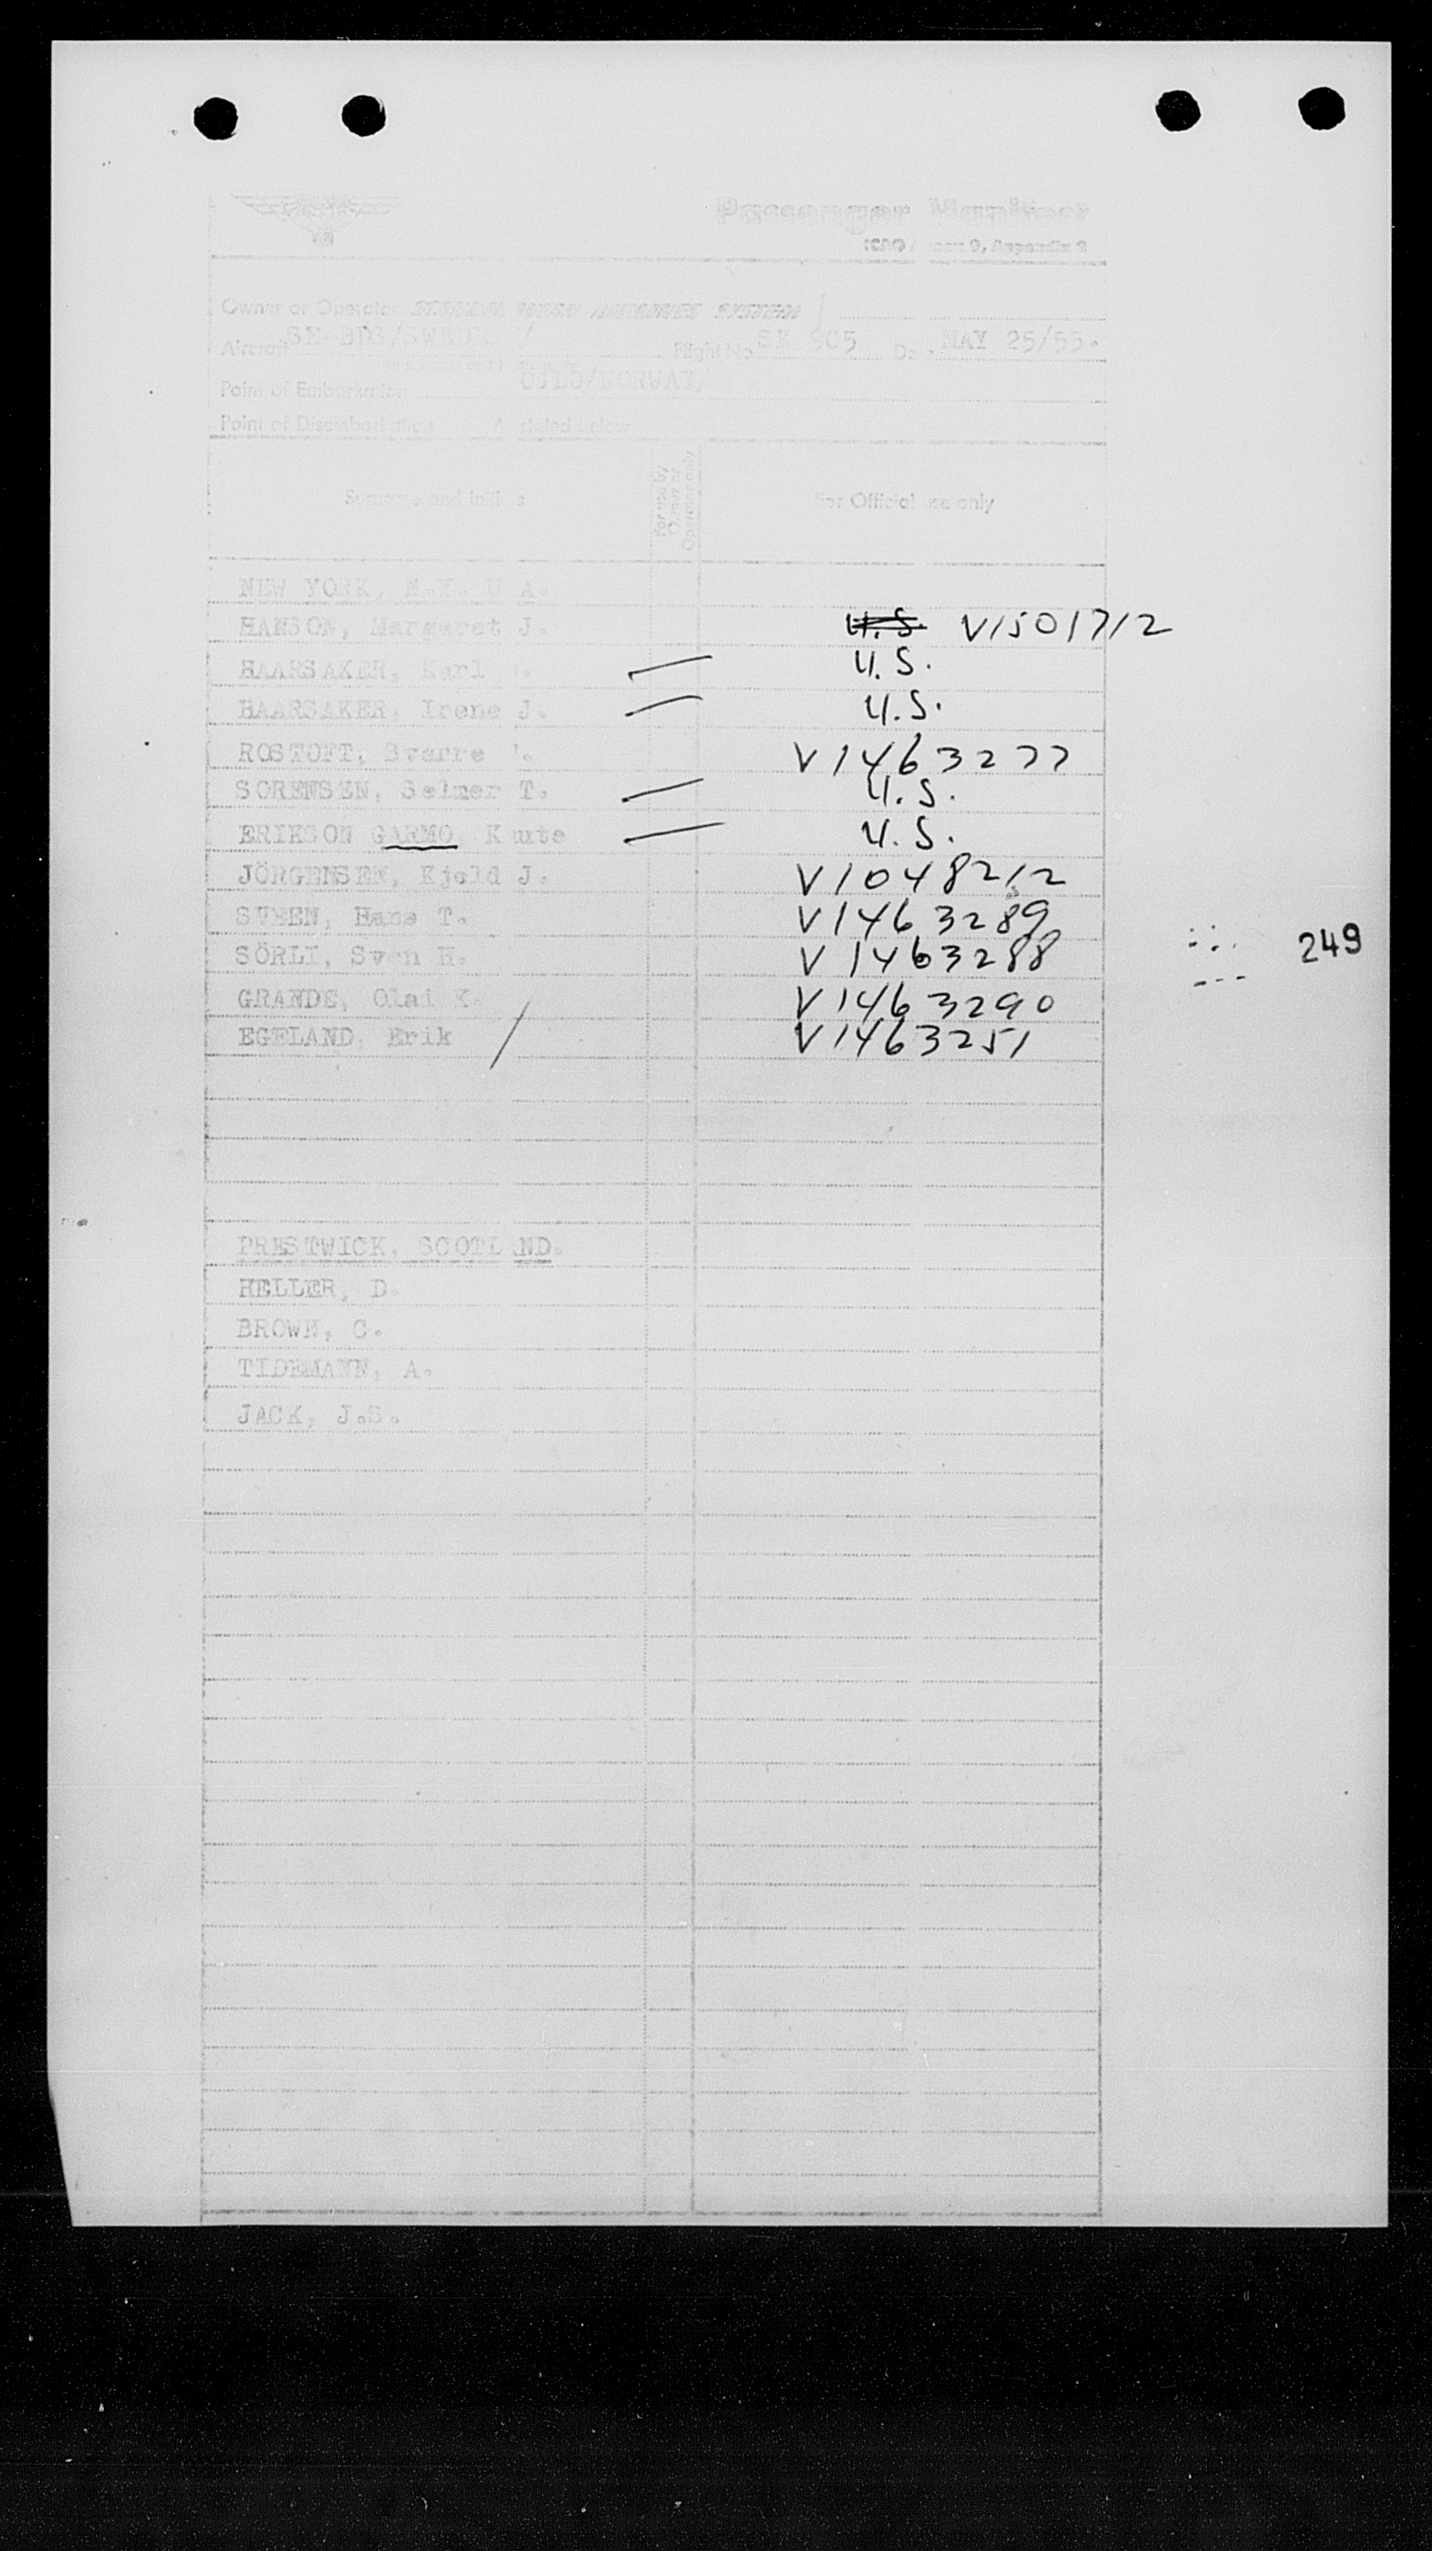 Passenger Manifest
ICAO Annex 9, Appendix 2
Owner or Operator SYSTEM
Aircraft Flight No SK 905 MAY 25/55.
Point of Embarkation OSLO/NORWAY
Point of Disembarkation As stated below
Surname and Initials
For use by Owner or Operator only
For Official use only
NEW YORK, N.Y. U A.
HANSON, Margaret J. U.S. V1501712
HAARSAKER, Karl U.S.
HAARSAKER, Irene J. U.S.
ROSTOFT, Sverre V1463277
SORENSEN, Selmer T. U.S.
ERIKSON GARMO, Knute U.S.
JÖRGENSEN, Kjeld J. V1048212
SVEEN, Hans T. V1463289
SÖRLI, Sven H. V1463288
249
GRANDE, Olai K. V1463290
EGELAND, Erik V1463251
PRESTWICK, SCOTLAND.
HELLER, D.
BROWN, C.
TIDEMANN, A.
JACK, J.S.